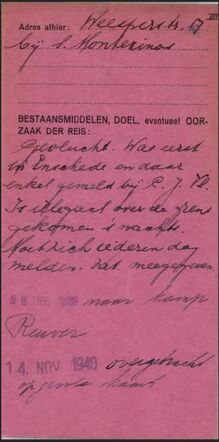 Adres alhier: Weesperstr. 17 III
bij S. Montezinos
BESTAANSMIDDELEN, DOEL, eventueel OOR-
ZAAK DER REIS:
Gevlucht. Was eerst
in Enschede en daar
enkel gemeld bij C. J. Vl.
Is illegaal over de grens
gekomen 's nachts.
Moet zich iederen dag
melden. Kat. meegegeven
8 DEC 1938 naar kamp
Reuver
14. NOV 1940 overgebracht
op groote kaart